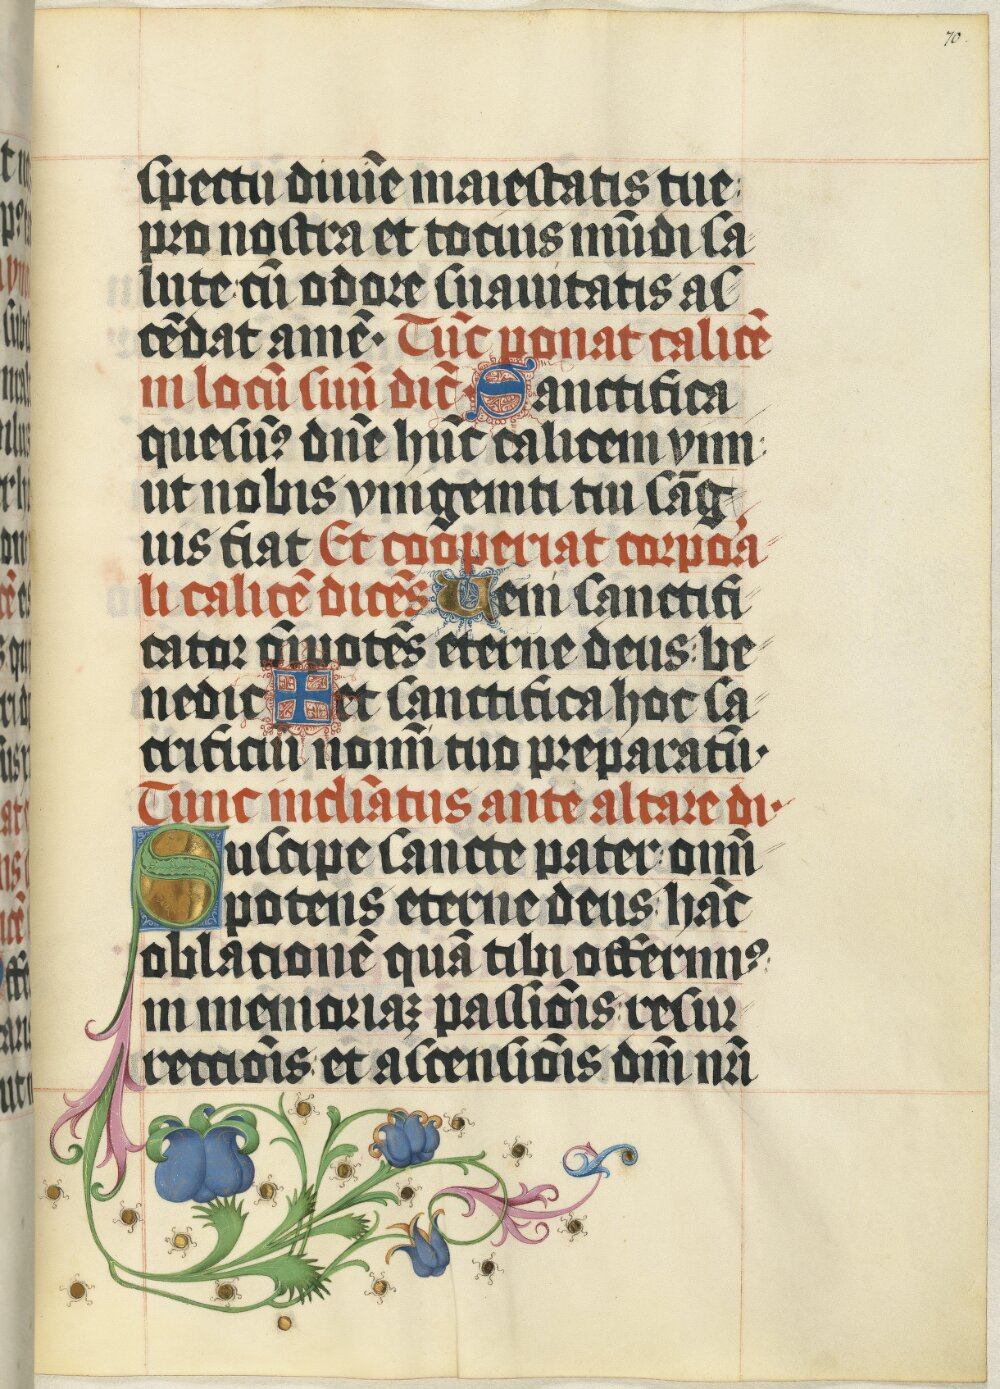 70.
spectu diuīe maiestatis tue:
pro nostra et tocius mūdi sa
lute: cū odore suauitatis as
cēdat amē. Tūc ponat calicē
in locū suū dic̄. Sanctifica
quesum⁹ dn̄e hūc calicem vini:
ut nobis vnigeniti tui sāg
uis fiat Et coōperiat corpora
li calicē dicēs Ueni sanctifi
cator om̄ipotēs eterne deus: be
nedic ✠ et sanctifica hoc sa
crificiū nomī tuo preparatū.
Tunc incliātus ante altare di.
Suscipe sancte pater: om̄i
potens eterne deus: hāc
oblacionē quā tibi offerim⁹:
in memoriaꝫ passiōis: resur
rectiōis: et ascensiōis dn̄i nr̄i